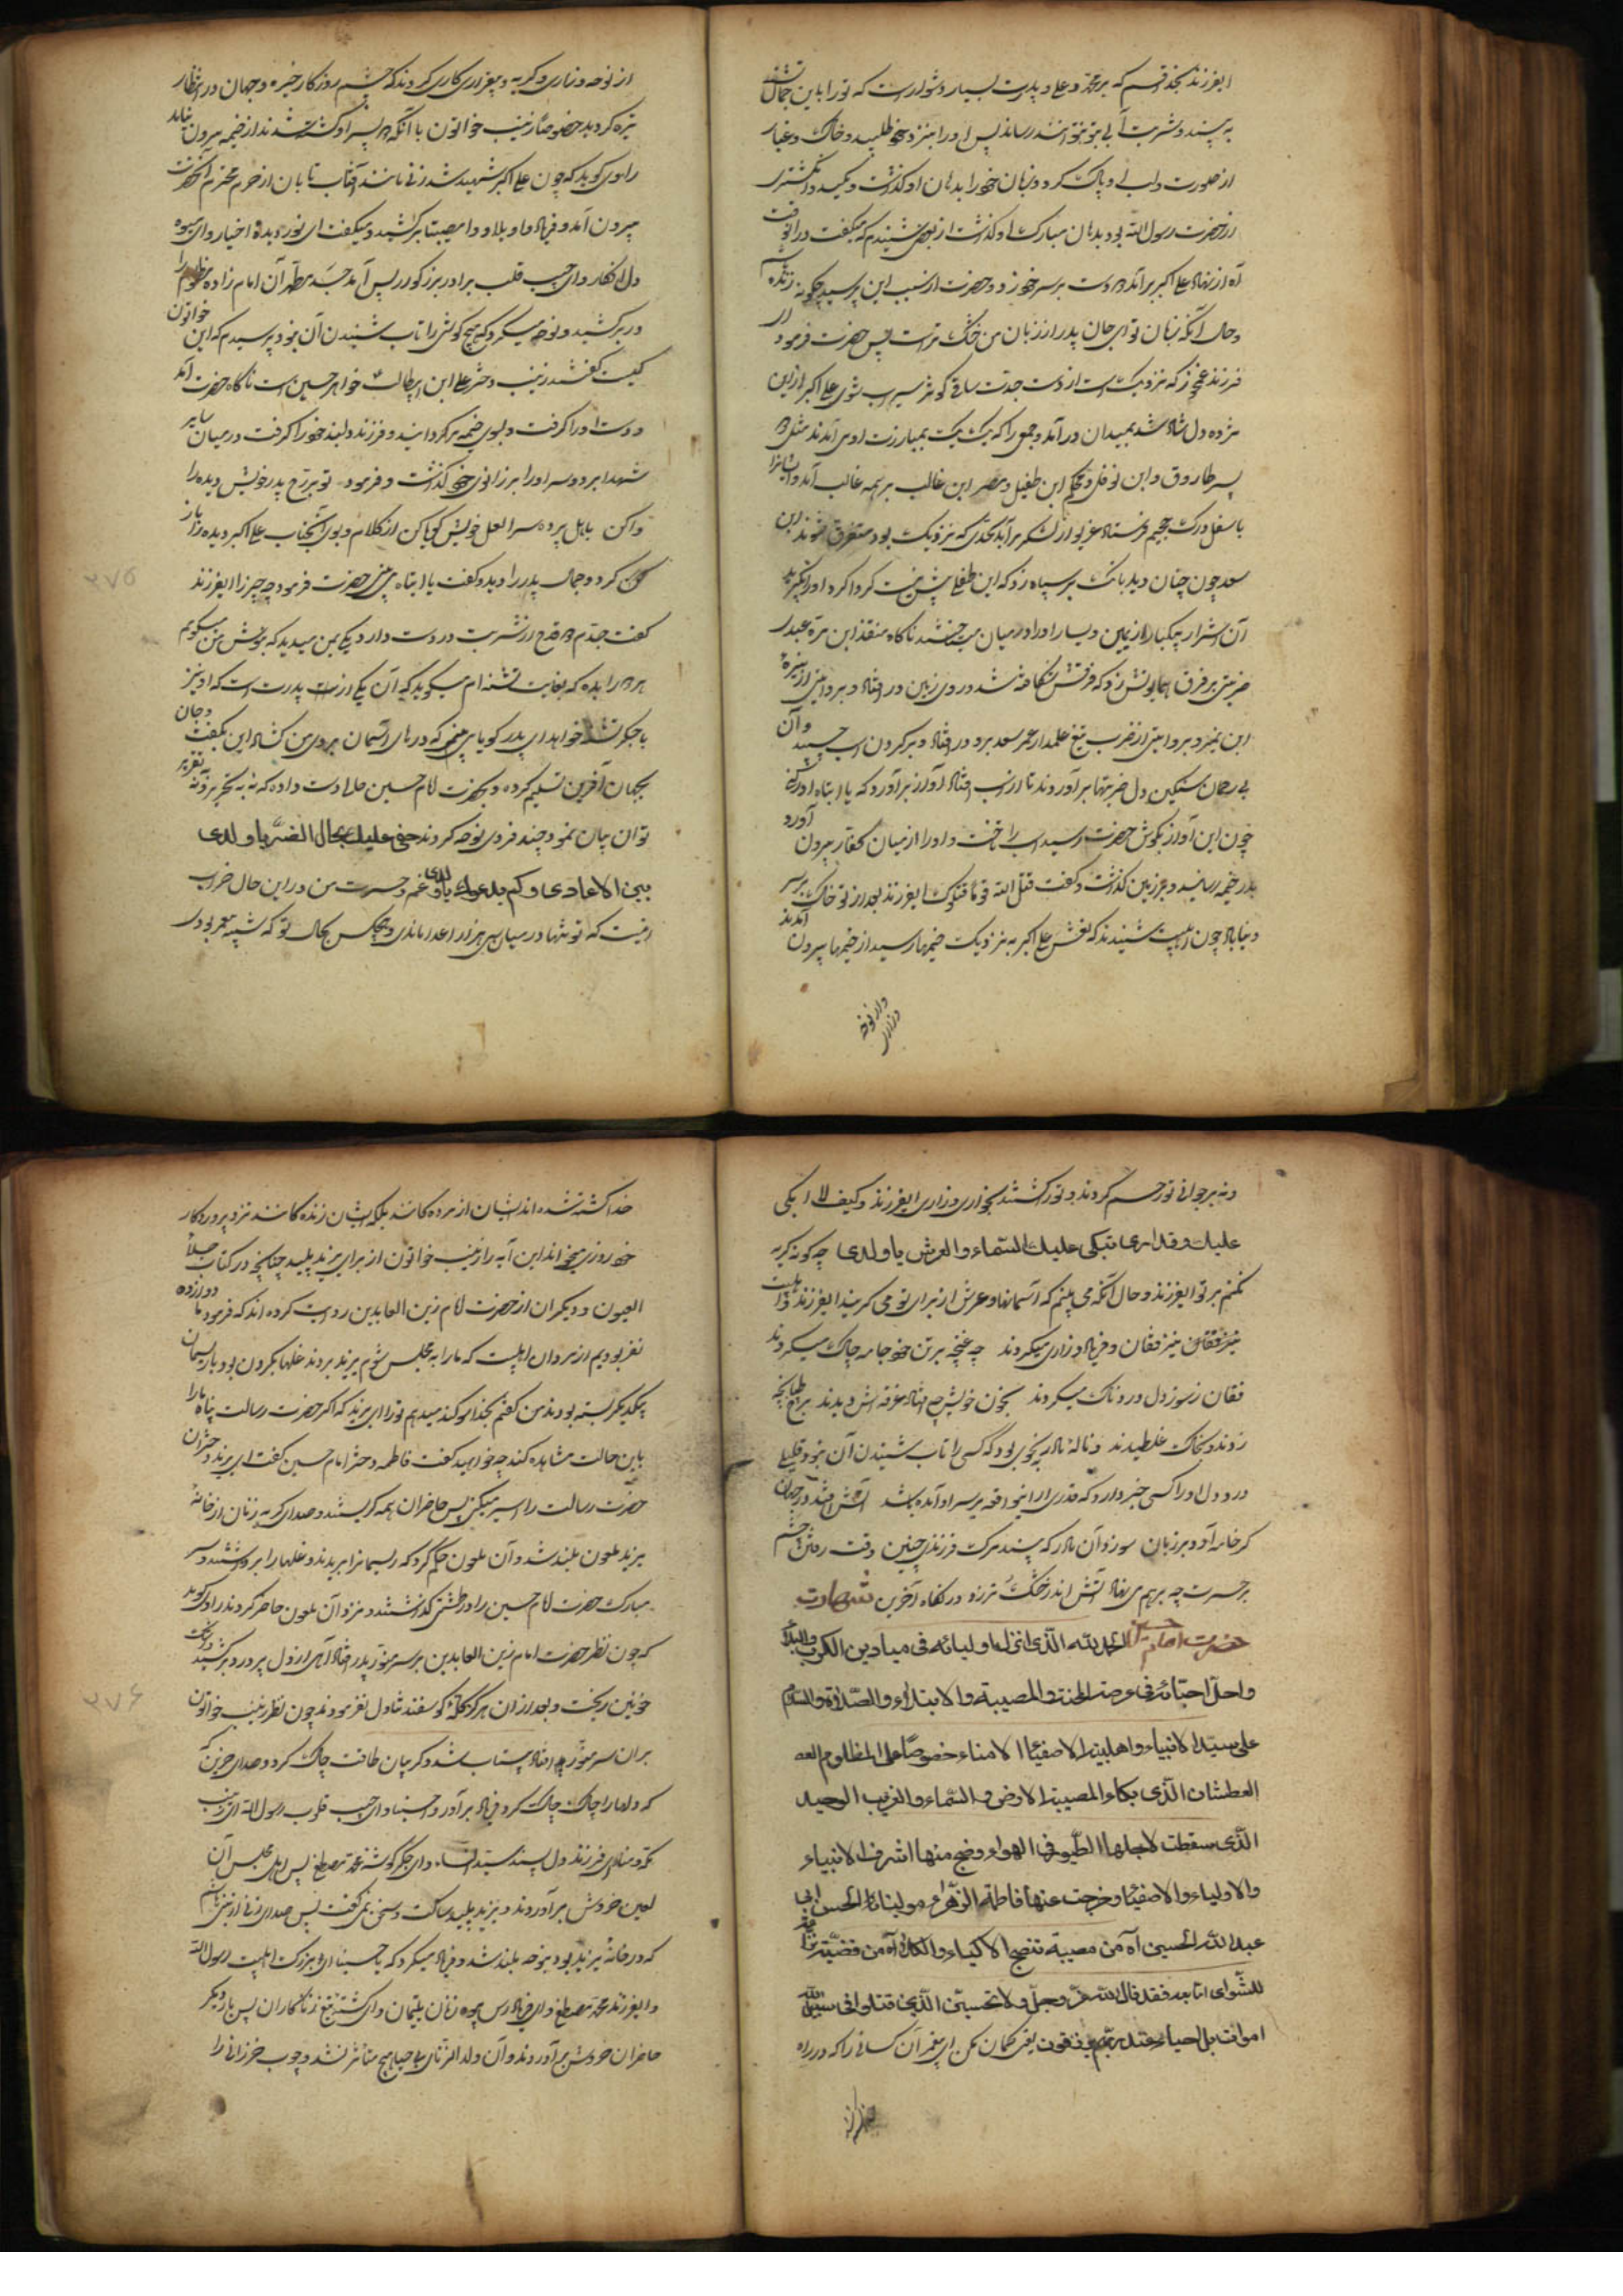 ایفرزند بخدا قسم که بر محمد و علی و پدرت بسیار دشوار است که تو را باین حال تشنه
به بیند و شربت آبی بتو نتواند رسانید پس او را بنزد خود طلبید و خاک و غبار
از صورت و لب او پاک کرد و زبان خود را بدهان او گذاشت و مکید و انگشتری
از حضرت رسول الله بود بدهان مبارک او گذاشت از بعضی شنیدم که میگفت در آنوقت
آه از نهاد علی اکبر برآمد دو دست بر سر خود زد و حضرت از سبب این پرسید چگونه زنده باشم
و حال آنکه زبان تو ای جان پدر از زبان من خشک تر است پس حضرت فرمود ای
فرزند غم مخور که نزدیک است از دست جدت ساقی کوثر سیراب شوی علی اکبر از این
مژده دل شاد شد بمیدان درآمد و جمعی را که یک یک بمبارزت او می آمدند مثل دو
پسر طارق و ابن نوفل و محکم ابن طفیل و مصر ابن غالب بر همه غالب آمد و ایشانرا
باسفل درک جحیم فرستاد غریو از لشکر برآمد بحدی که نزدیک بود متفرق شوند ابن
سعد چون چنان دید بانک بر سپاه زد که این طفلی بیش نیست گرداگرد او را بگیرید
آن اشرار بیکبار از یمین و یسار او را در میان گرفتند ناگاه منقذ ابن مرة عبدی
ضربتی بر فرق همایونش زد که فرقش شکافته شد و روی زمین در افتاد و بروایتی از نیزه
ابن نمیر و بروایتی از ضرب تیغ علمدار عمر سعد بر رو در افتاد و بر گردن اسب چسبید و آن
بی رحمان سنگین دل ضربتها بر آوردند تا از اسب افتاد آواز برآورد که یا ابتاه ادرکنی
چون این آواز بگوش حضرت رسید اسب را تاخت و او را از میان کفار بیرون آورد
بدر خیمه رسانید و بر زمین گذاشت و گفت قتل الله قوما قتلوک ایفرزند بعد از تو خاک بر سر
دنیا باد چون اهلبیت شنیدند که نعش علی اکبر به نزدیک خیمها رسید از خیمها بیرون آمدند
از نوحه و زاری و گریه و بیقراری کاری کردند که چشم روزگار خیره و جهان در انظار
تیره گردید خصوصاً زینب خواتون با آنکه دو پسر او کشته شدند از خیمه بیرون نیامد
راوی گوید که چون علی اکبر شهید شد زنی مانند آفتاب تابان از حرم محترم آنحضرت
بیرون آمد و فریاد واویلا و وامصیبتا برکشید و میگفت ای نور دیدۀ اخیار و ای میوه
دل افکار و ای حبیب قلب برادر بزرگوار پس آمد جسد مطهر آن امام زاده مظلوم را
در برکشید و نوحه میکرد که هیچ گوش را تاب شنیدن آن نبود پرسیدم که این خواتون
کیست گفتند زینب دختر علی ابن ابیطالب خواهر حسین است ناگاه حضرت آمد
و دست او را گرفت و بسوی خیمه برگردانید و فرزند دلبند خود را گرفت در میان سایر
شهدا برد و سر او را بر زانوی خود گذاشت و فرمود تو بر رخ پدر خویش دیده را
واکن بابل پر دو سر لعل خویش گویا کن از کلام و بوی آنجناب علی اکبر دیده را باز
کرد و جمال پدر را دید و گفت یا ابتاه می بینی حضرت فرمود چه چیز را ایفرزند
گفت جدم دو قدح از شربت در دست دارد یکی بمن میدهد که بنوش من میگویم
هر دو را بده که بغایت تشنه ام میگوید که آن یکی از برای پدرت است که او نیز
با جگر تشنه خواهد آمد ای پدر گویا می بینم که درهای آسمان بروی من گشاد این بگفت و جان
بجهان آفرین تسلیم کرد و بحضرت امام حسین حالی دست داد که نه به تحریر و نه تقریر
توان بیان نمود چند فردی نوحه کردند حنی علیک بحال الضر یا ولدی
بین الاعادی و کم یدعوک یا ولدی غم و حسرت من در این حال خراب
اینست که تو تنها در میان سی هزار اعدا ماندی و هیچکس بحال تو که شبیه پیغمبر بودی
۳۷۵
و نه بر جوانی تو رحم کردند و تو را کشتند بخواری و زاری ایفرزند و کیف لا ابکی
علیک و قد اری تبکی علیک السماء و العرش یا ولدی چه گونه گریه
نکنم بر تو ایفرزند و حال آنکه می بینم که آسمانها و عرش از برای تو می گریند ایفرزند و اهلبیت
نیز فغان و فریاد و زاری میکردند چه غنچه بر تن خود جامه چاک میکردند
فغان ز سوز دل دردناک میکردند بخون خویش چو افتاده غرقه اش دیدند بر رخ طپانچه
زدند و بخاک غلطیدند و نالۀ مادر بنحوی بود که کسی را تاب شنیدن آن نبود
درد دل او را کسی خبر دارد که قدری از اینواقعه بر سر او آمده باشد آتش افتد در جهان
گر خامه آرد بر زبان سوز آن مادر که بیند مرگ فرزندی چنین وقت رفتن چشم
بر حسرت چه بر هم می نهاد آتش اندر خشک و تر زد در نگاه آخرین شهادت
حضرت امام حسین الحمد لله الذی انزل اولیائه فی میادین الکرب و البلاء
و احل احبائه فی عرصة المحنة و المصیبة و الابتلاء و الصلاة و السلام
علی سید الانبیاء و اهلبیته الاصفیاء الامناء خصوصاً علی المظلوم
العطشان الذی بکاء المصیبته الارض و السماء و الغریب الوحید
الذی سقطت لاجلها الطیور فی الهواء و ضج منها اشرف الانبیاء
و الاولیاء و الاصفیاء و خرجت عنها فاطمة الزهراء مولینا ابی
عبد الله الحسین آه من مصیبة تنضج الاکباد و الکلا آه من قضیة
للشوای اما بعد فقد قال الله عز و جل و لا تحسبن الذین قتلوا فی سبیل الله
امواتا بل احیاء عند ربهم یرزقون یعنی گمان مکن ای پیغمبر آن کسانی را که در راه
خدا کشته شده اند ایشان از مرده گانند بلکه ایشان زنده گانند نزد پروردگار
خود روزی میخوراند این آیه را زینب خواتون از برای یزید پلید چنانچه در کتاب جلاء
العیون و دیگران از حضرت امام زین العابدین روایت کرده اند که فرمود ما دوازده
نفر بودیم از مردان اهلبیت که ما را به مجلس شوم یزید بردند غلها بگردن بود و با ریسمان
بیکدیگر بسته بودند من گفتم بخدا سوگند میدهم تو را ای یزید که اگر حضرت رسالت پناه ما را
باین حالت مشاهده کند چه خواهید گفت فاطمه دختر امام حسین گفت ای یزید دختران
حضرت رسالت را اسیر میکنی پس حاضران همه گریستند و صدای گریه زنان از خانه
یزید ملعون بلند شد و آن ملعون حکم کرد که ریسمانرا بریدند و غلها را برداشتند و سر
مبارک حضرت امام حسین را در طشتی گذاشتند و نزد آن ملعون حاضر کردند راوی گوید
که چون نظر حضرت امام زین العابدین بر سر منور پدر افتاد آهی از دل پر درد برکشید و اشک
خونین ریخت و بعد از آن هرگز کلۀ گوسفند تناول نفرمودند چون نظر زینب خواتون
بر آن سر منور افتاد بیتاب شد و گریبان طاقت چاک کرد و صدای حزین که
که دلها را چاک چاک کرد فریاد برآورد واحسینا و ای حبیب قلوب رسول الله ای زینب
مکه و منا ای فرزند دل پسند سیدة النساء و ای جگرگوشه محمد مصطفی پس اهل مجلس آن
لعین خروش برآوردند و یزید پلید ساکت و سخن نمی گفت پس صدای زنی از بنی هاشم
که در خانۀ یزید بود بنوحه بلند شد و فریاد میکرد که یا حسینا ای بزرگ اهلبیت رسول الله
و ایفرزند محمد مصطفی و ای فریادرس بیوه زنان یتیمان و ای کشته تیغ زناکاران پس بار دیگر
حاضران خروش برآوردند و آن ولد الزنای بی حیا هیچ متأثر نشد و چوب خزرانی را
۳۷۶